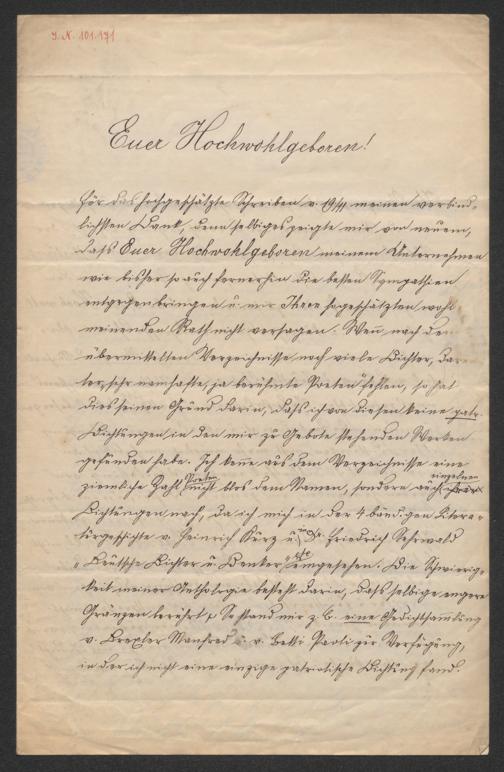 J. N. 101.171
Euer Hochwohlgeboren!
Für das hochgeschätzte Schreiben v. 19/11 meinen verbind-
lichsten Dank, denn selbiges zeigte mir von neuem,
daß Euer Hochwohlgeboren meinem Unternehmen
wie bisher so auch fernerhin die besten Sympathien
entgegenbringen u. mir Ihren hochgeschätzten wohl-
meinenden Rath nicht versagen. Weñ nach dem
übermittelten Verzeichnisse noch viele Dichter, dar-
unter sehr namhafte, ja berühmte Poeten fehlen, so hat
dies seinen Grund darin, daß ich von diesen keine patr.
Dichtungen in den mir zu Gebote stehenden Werken
gefunden habe. Ich keñe aus dem Verzeichnisse eine
ziemliche Zahl Poeten nicht blos dem Namen, sondern auch einzelnen
Dichtungen nach, da ich mich in der 4 bändigen Litera-
turgeschichte v. Heinrich Kurz u. in Dr. Friedrich Sehrwald
"Deutsche Dichter u. Denker" etc eingesehen. Die Schwierig-
keit meiner Anthologie besteht darin, daß selbige engere
Gränzen berührt. So stand mir z. B. eine Gedichtsamlung
v. Drexler Manfred u. v. Betti Paoli zur Verfügung,
in der ich nicht eine einzige patriotische Dichtung fand.